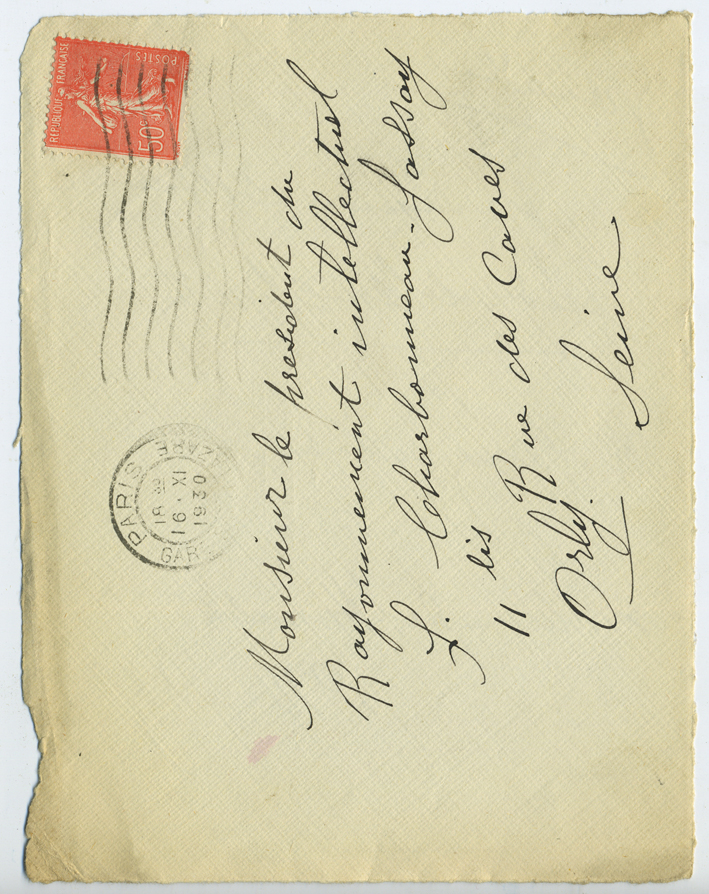 RÉPUBLIQUE FRANÇAISE
POSTES
50c
PARIS
GARE LAZARE
18 30
16 · XI
1930
Monsieur le president du
Rayonnement intellectuel
L. Charbonneau-Lassay
11 bis Rue des Caves
Orly. Seine